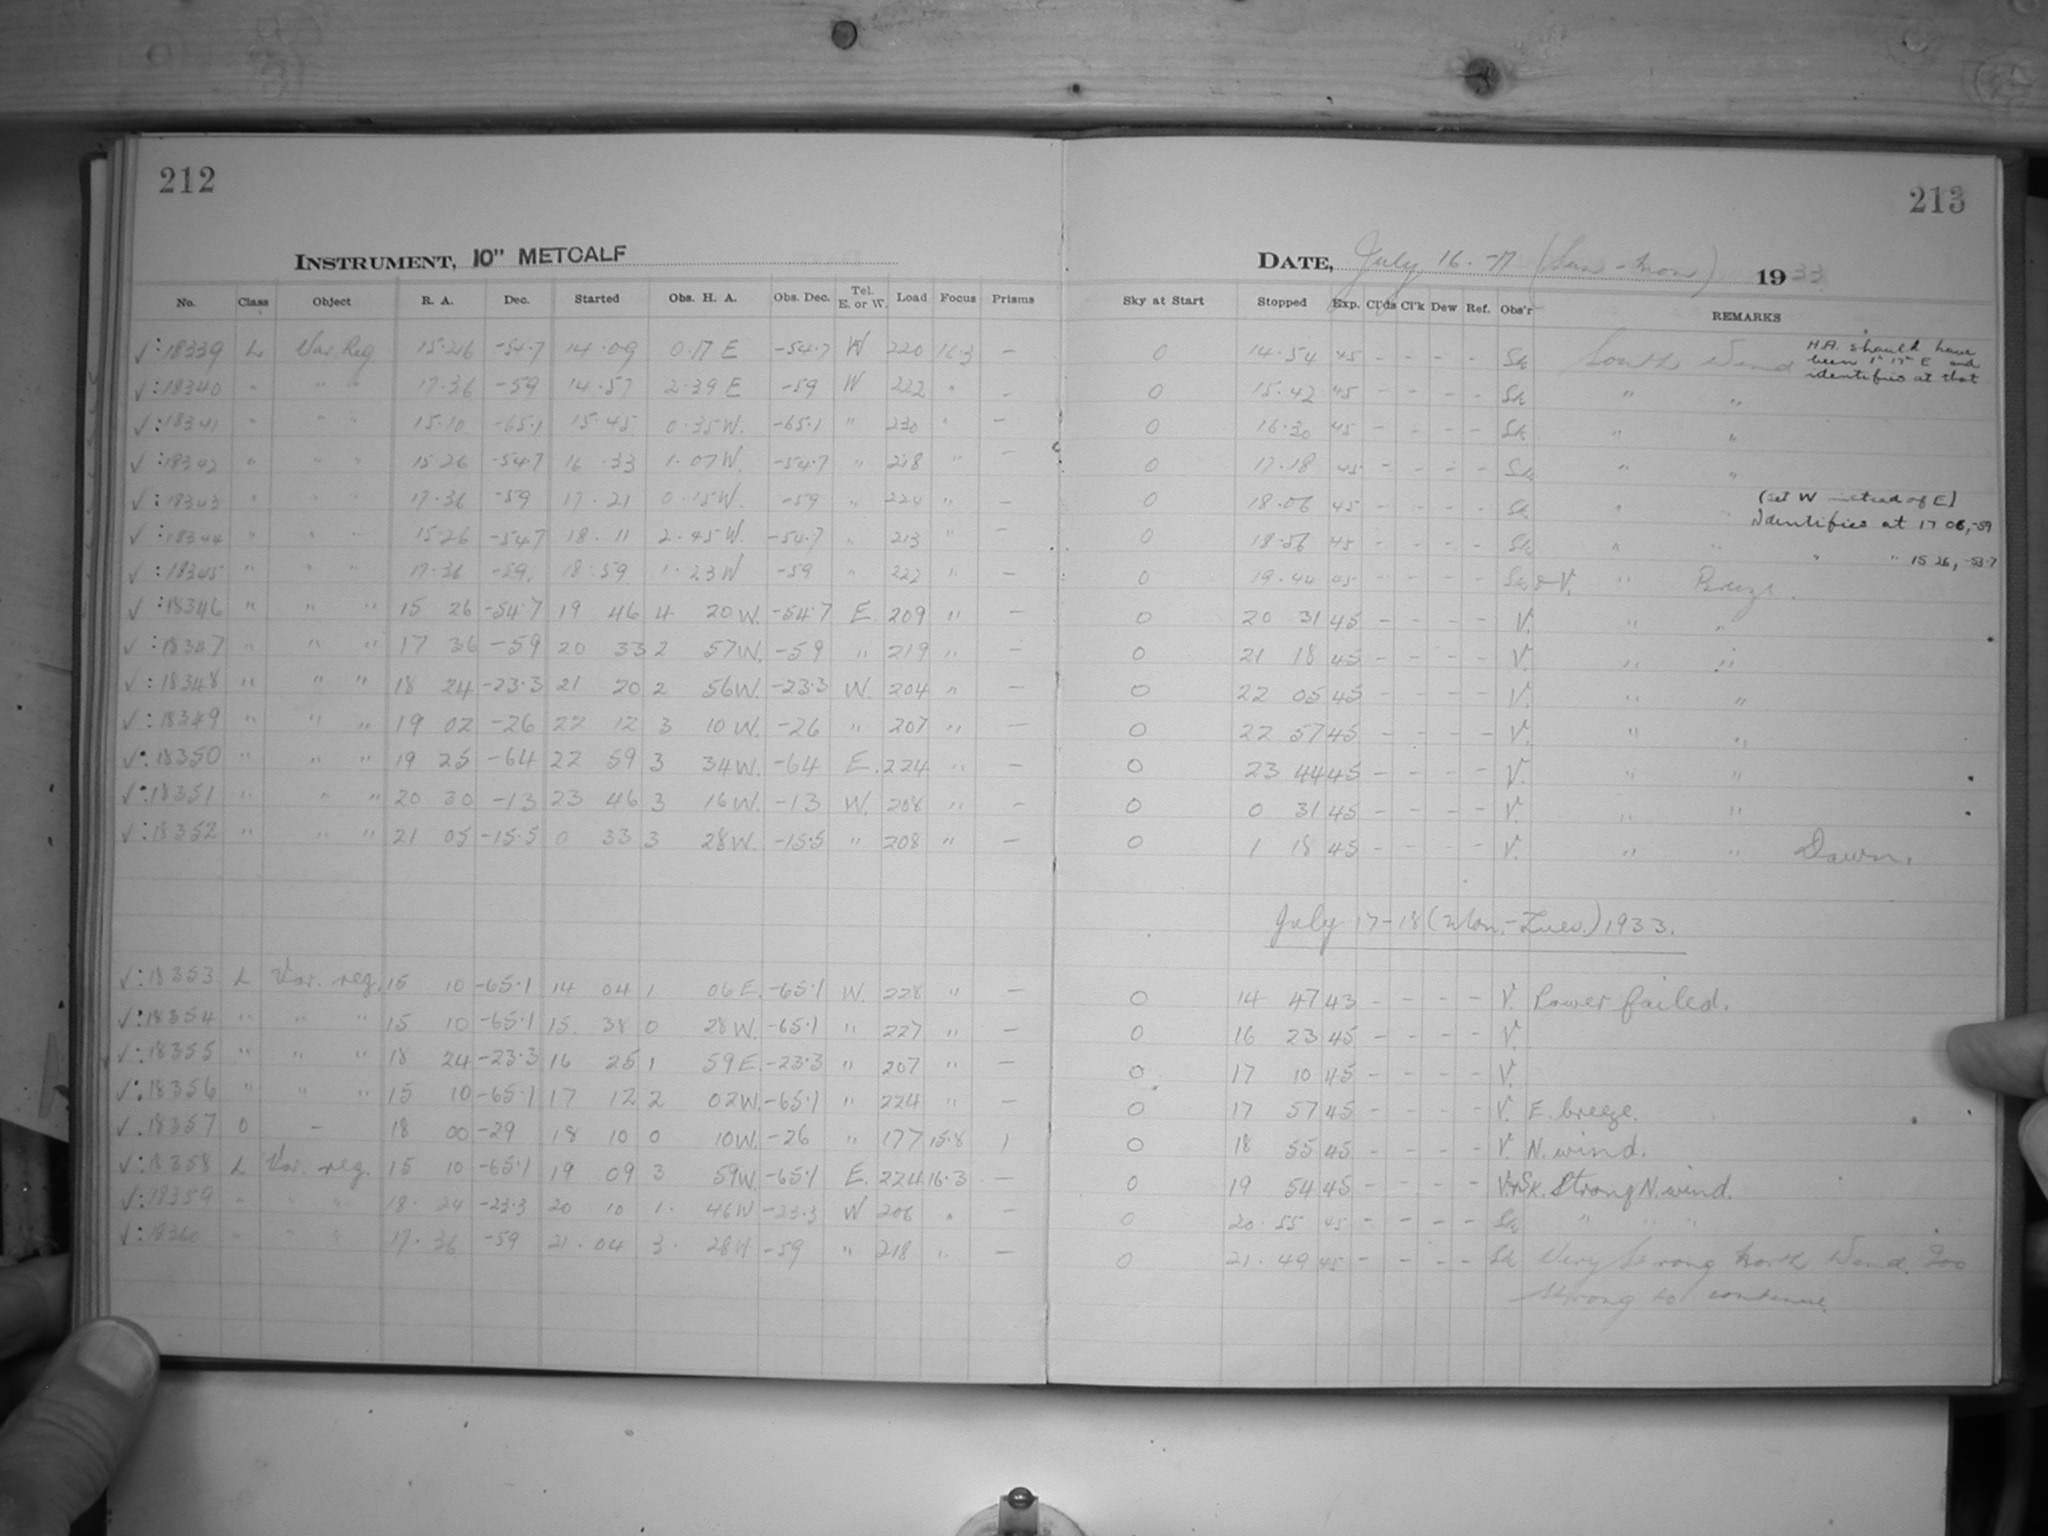 212
213
INSTRUMENT, 10" METCALF
DATE, July 16.-17 (Sun-Mon) 1933
No. Class Object R. A. Dec. Started Obs. H. A. Obs. Dec. Tel. E. or W. Load Focus Prisms Sky at Start Stopped Exp. Cl'ds Cl'k Dew Ref. Obs'r REMARKS
√:18339 L Var Reg 15·26 -54·7 14·09 0·17 E -54·7 W 220 16·3 — 0 14·54 45 - - - - Sk South Wind H.A. should have been 1h 17m E and identifies at that
√:18340 " " " 17·36 -59 14·57 2·39 E -59 W 222 " — 0 15·42 45 - - - - Sk " "
√:18341 " " " 15·10 -65·1 15·45 0·35 W. -65·1 " 230 " — 0 16·30 45 - - - - Sk " "
√:18342 " " " 15·26 -54·7 16·33 1·07 W. -54·7 " 218 " — 0 17·18 45 - - - - Sk " "
√:18343 " " " 17·36 -59 17·21 0·15 W. -59 " 224 " — 0 18·06 45 - - - - Sk " " (set W instead of E) Identifies at 17 06, -59
√:18344 " " " 15 26 -54·7 18·11 2·45 W. -54·7 " 213 " — 0 18·56 45 - - - - Sk " " " " 15 26, -53·7
√:18345 " " " 17·36 -59. 18:59 1·23 W -59 " 222 " — 0 19·44 45 - - - - Sk & V. " Breeze.
√:18346 " " " 15 26 -54·7 19 46 4 20 W. -54·7 E 209 " — 0 20 31 45 - - - - V. " "
√:18347 " " " 17 36 -59 20 33 2 57 W. -59 " 219 " — 0 21 18 45 - - - - V. " "
√:18348 " " " 18 24 -23·3 21 20 2 56 W. -23·3 W. 204 " — 0 22 05 45 - - - - V. " "
√:18349 " " " 19 02 -26 22 12 3 10 W. -26 " 207 " — 0 22 57 45 - - - - V. " "
√:18350 " " " 19 25 -64 22 59 3 34 W. -64 E. 224 " — 0 23 44 45 - - - - V. " "
√:18351 " " " 20 30 -13 23 46 3 16 W. -13 W. 208 " — 0 0 31 45 - - - - V. " "
√:18352 " " " 21 05 -15·5 0 33 3 28 W. -15·5 " 208 " — 0 1 18 45 - - - - V. " " Dawn.
July 17-18 (Mon.-Tues.) 1933.
√:18353 L Var. reg. 15 10 -65·1 14 04 1 06 E. -65·1 W. 228 " — 0 14 47 43 - - - - V. Power failed.
√:18354 " " " 15 10 -65·1 15. 38 0 28 W. -65·1 " 227 " — 0 16 23 45 - - - - V.
√:18355 " " " 18 24 -23·3 16 25 1 59 E. -23·3 " 207 " — 0 17 10 45 - - - - V.
√:18356 " " " 15 10 -65·1 17 12 2 02 W. -65·1 " 224 " — 0 17 57 45 - - - - V. E. breeze.
√.18357 O — 18 00 -29 18 10 0 10 W. -26 " 177 15·8 1 0 18 55 45 - - - - V. N. wind.
√:18358 L Var. reg. 15 10 -65·1 19 09 3 59 W. -65·1 E. 224 16·3 — 0 19 54 45 - - - - V.&Sk. Strong N. wind.
√:18359 " " " 18· 24 -23·3 20 10 1· 46 W -23·3 W 206 " — 0 20·55 45 - - - - Sk " " "
√:18360 " " " 17·36 -59 21·04 3· 28 W -59 " 218 " — 0 21·49 45 - - - - Sk Very Strong North Wind. Too
strong to continue.